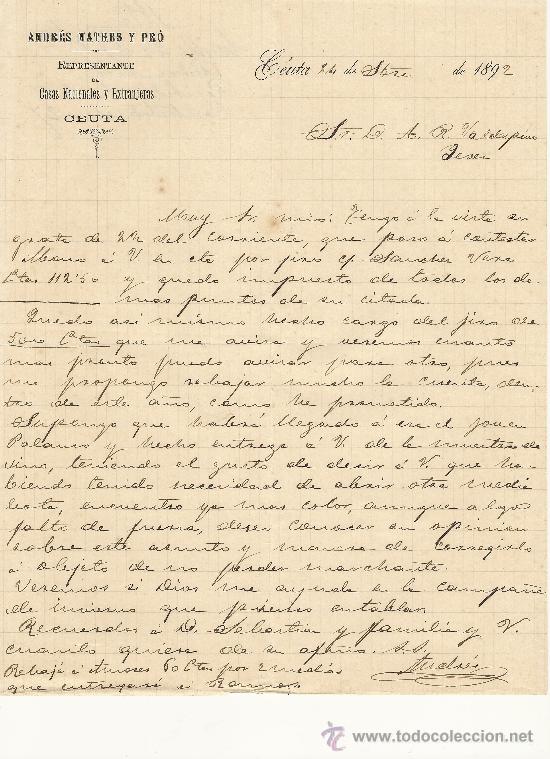 ANDRÉS MATHES Y PRÓ
REPRESENTANTE
DE
Casas Nacionales y Extranjeras
CEUTA
Ceuta 24 de Sbre de 1892
Sr. D. A. R. Valdespino
Jerez
Muy Sr. mio: Tengo á la vista su
grata de 22 del corriente, que paso á contestar
á V en cta por jiro c/ Sanchez
Ptas 112'50 y quedo impuesto de todos los de-
mas puntos de su citada.
Quedo asi mismo hecho cargo del jiro de
Ptas que me avisa y veremos cuanto
mas pronto puedo avisar para otro, pues
me propongo rebajar mucho la cuenta, den-
tro de este año, como he prometido.
Supongo que habrá llegado á esa el joven
Palomo y hecho entrega á V. de la muestra de
vino, teniendo el gusto de decir á V. que ha-
biendo tenido necesidad de abrir otra media
bota, encuentro ya mas color, aunque algo
falto de fuerza, deseo conocer su opinion
sobre este asunto y manera de corregirlo
á objeto de no perder marchante.
Veremos si Dios me ayuda en la campaña
de invierno que pienso entablar.
Recuerdos á D. Sebastian y familia y V.
cuanto quiera de su afmo. S.S.
Rebajé á 50 Ptas por
que entregará á Ramos
Andrés
todocoleccion
www.todocoleccion.net